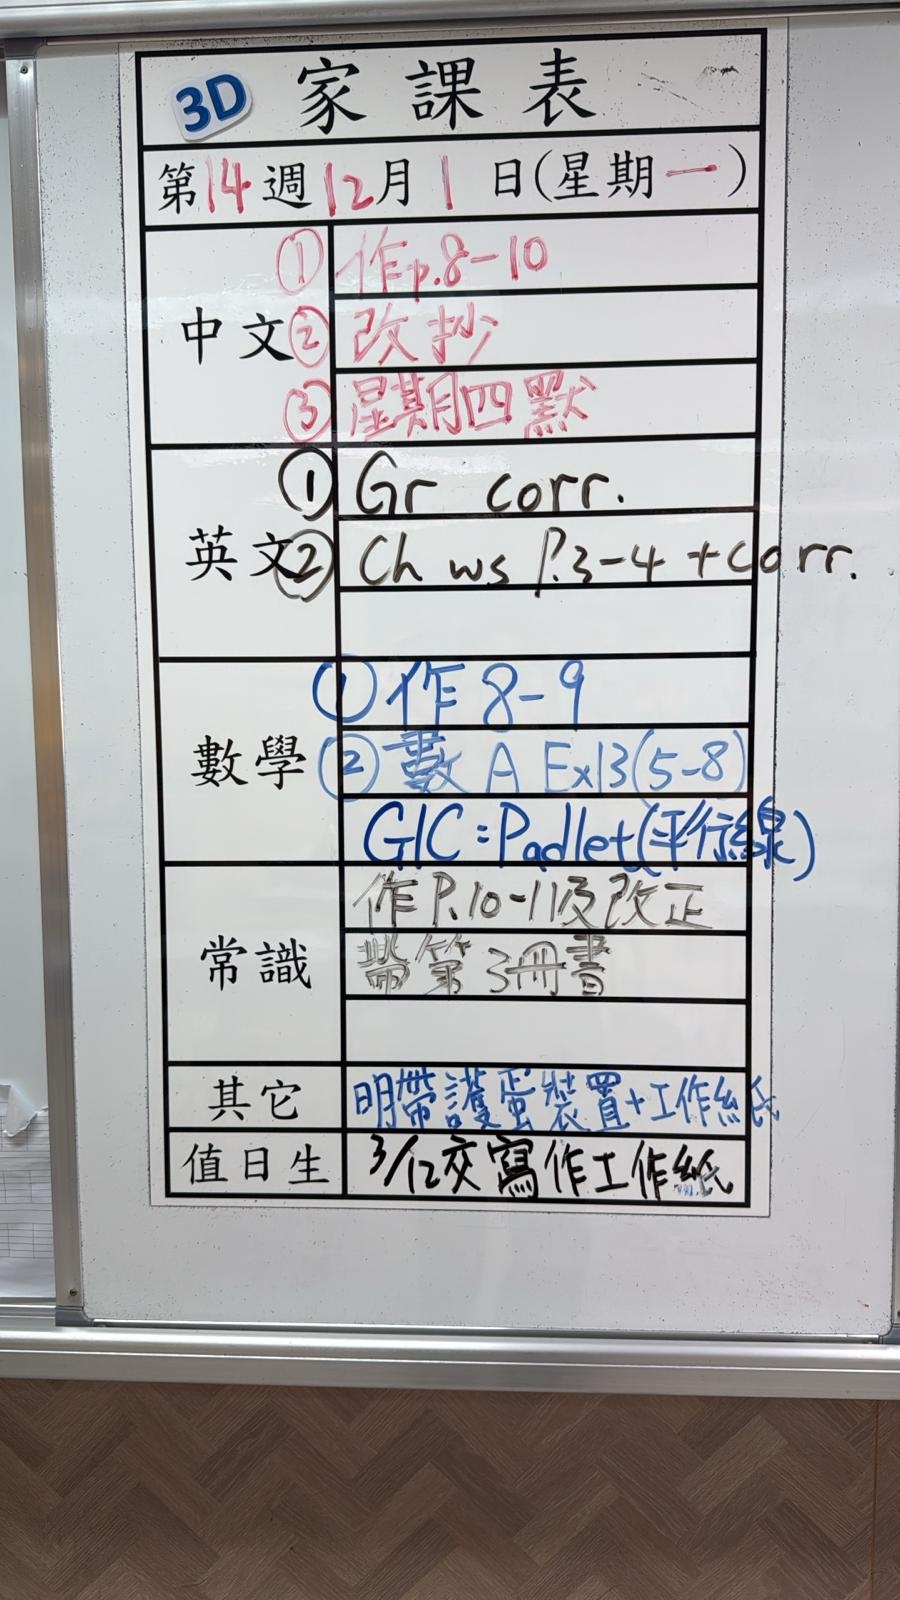 3D 家課表
第14週12月1日(星期一)
中文
① 作p.8-10
② 改抄
③ 星期四默
英文
① Gr corr.
② Ch ws P.3-4 +corr.
數學
① 作 8-9
② 數 A Ex13(5-8)
GIC:Padlet(平行線)
常識
作P.10-11及改正
帶第3冊書
其它
明帶護蛋裝置+工作紙
值日生
3/12交寫作工作紙